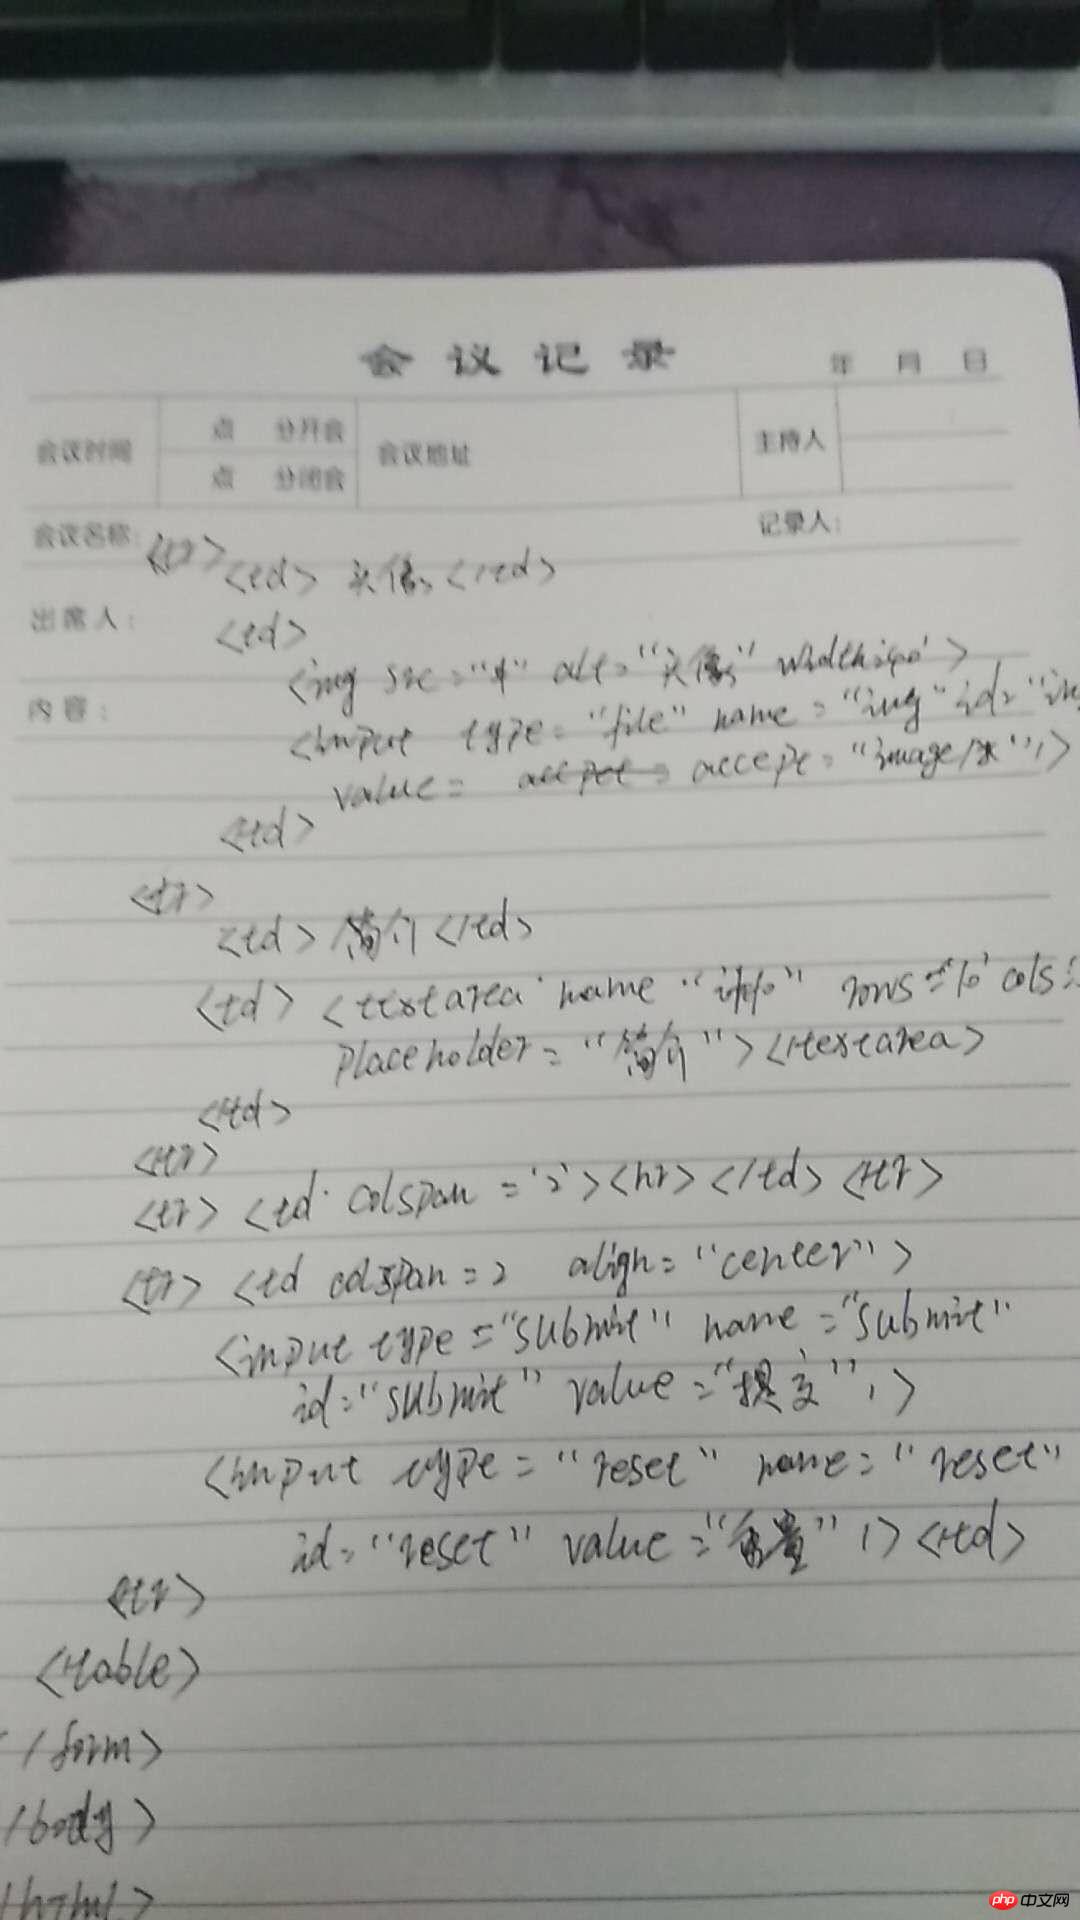 会议记录
年 月 日
会议时间 点 分开会 会议地址 主持人
点 分闭会
会议名称: 记录人:
<tr>
<td> 头像 </td>
出席人:
<td>
<img src="#" alt="头像"
内容:
<input type="file" name="img" id=
value= accept="image/*" />
</td>
</tr>
<td>简介</td>
<td> <textarea name "info" rows='10' cols
placeholder="简介"></textarea>
</td>
</tr>
<tr> <td colspan='2'><hr></td></tr>
<tr> <td colspan=2 align="center">
<input type="submit" name="submit"
id="submit" value="提交" />
<input type="reset" name="reset"
id="reset" value="重置" /></td>
</tr>
</table>
/form>
/body>
/html>
php 中文网